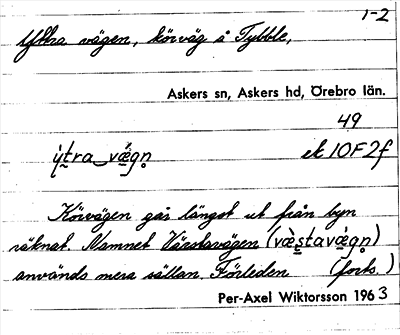 1-2
Yttra vägen, körväg å Tybble,
Askers sn, Askers hd, Örebro län.
49
ek 10F2f
Körvägen går längst ut från byn
räknat. Namnet Värstavägen (
används mera sällan. Förleden (forts.)
Per-Axel Wiktorsson 1963